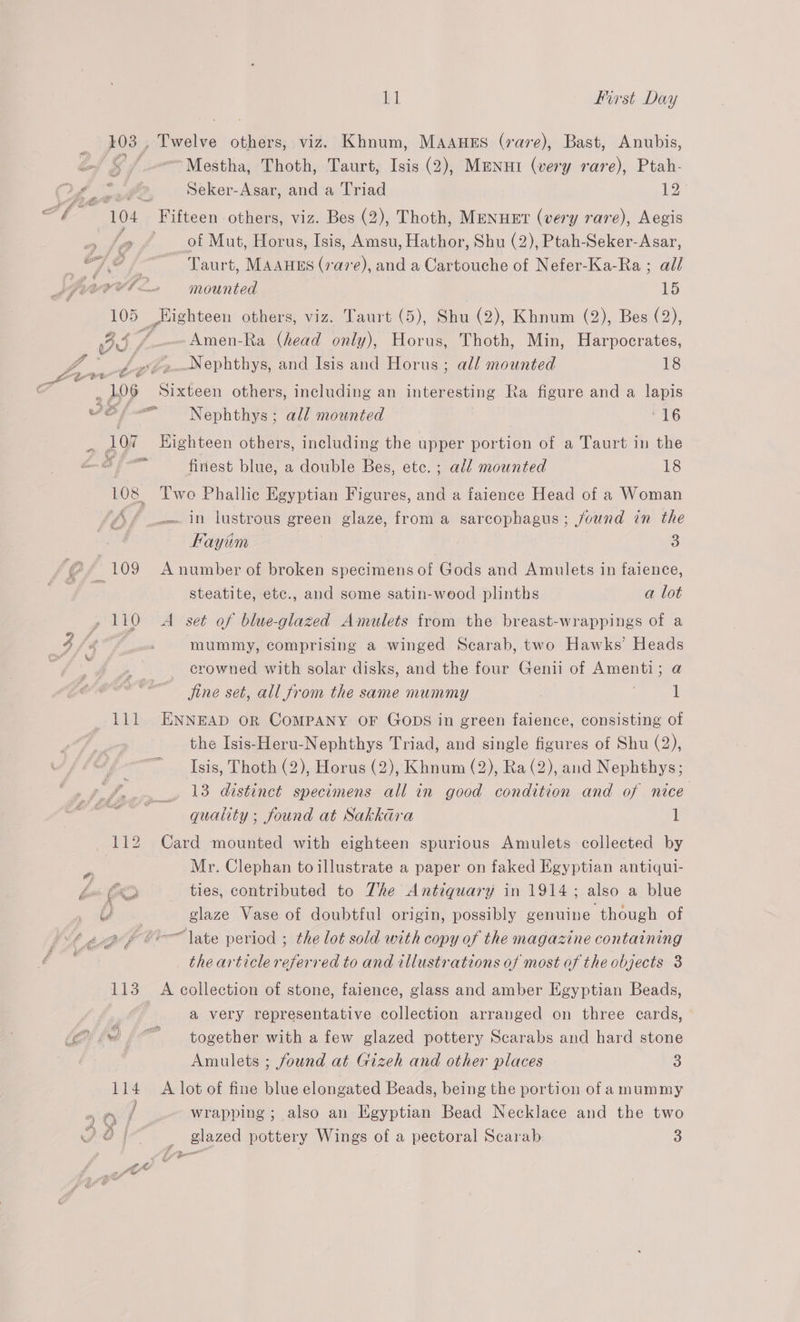 11 First Day
103 Twelve others, viz. Khnum, MAAHES (rare), Bast, Anubis,
Mestha, Thoth, Taurt, Isis (2), MENHI (very rare), Ptah-
Seker-Asar, and a Triad 12
104 Fifteen others, viz. Bes (2), Thoth, MENHET (very rare), Aegis
of Mut, Horus, Isis, Amsu, Hathor, Shu (2), Ptah-Seker-Asar,
Taurt, MAAHES (rare), and a Cartouche of Nefer-Ka-Ra ; all
mounted 15
105 Eighteen others, viz. Taurt (5), Shu (2), Khnum (2), Bes (2),
Amen-Ra (head only), Horus, Thoth, Min, Harpocrates,
Nephthys, and Isis and Horus ; all mounted 18
106 Sixteen others, including an interesting Ra figure and a lapis
Nephthys ; all mounted 16
107 Eighteen others, including the upper portion of a Taurt in the
finest blue, a double Bes, etc. ; all mounted 18
108 Two Phallic Egyptian Figures, and a faience Head of a Woman
in lustrous green glaze, from a sarcophagus ; found in the
Fayûm 3
109 A number of broken specimens of Gods and Amulets in faience,
steatite, etc., and some satin-wood plinths a lot
110 A set of blue-glazed Amulets from the breast-wrappings of a
mummy, comprising a winged Scarab, two Hawks' Heads
crowned with solar disks, and the four Genii of Amenti ; a
fine set, all from the same mummy 1
111 ENNEAD OR COMPANY OF GODS in green faience, consisting of
the Isis-Heru-Nephthys Triad, and single figures of Shu (2),
Isis, Thoth (2), Horus (2), Khnum (2), Ra (2), and Nephthys ;
13 distinct specimens all in good condition and of nice
quality ; found at Sakkâra 1
112 Card mounted with eighteen spurious Amulets collected by
Mr. Clephan to illustrate a paper on faked Egyptian antiqui-
ties, contributed to The Antiquary in 1914 ; also a blue
glaze Vase of doubtful origin, possibly genuine though of
late period ; the lot sold with copy of the magazine containing
the article referred to and illustrations of most of the objects 3
113 A collection of stone, faience, glass and amber Egyptian Beads,
a very representative collection arranged on three cards,
together with a few glazed pottery Scarabs and hard stone
Amulets ; found at Gizeh and other places 3
114 A lot of fine blue elongated Beads, being the portion of a mummy
wrapping ; also an Egyptian Bead Necklace and the two
glazed pottery Wings of a pectoral Scarab 3